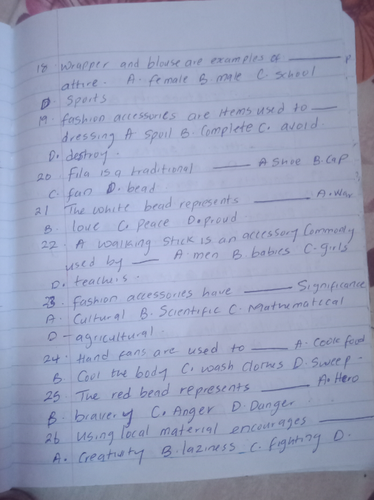 18 Wrapper and blouse are examples of ______
attire. A. female B. male C. School
D. Sports
19. fashion accessories are items used to ___
dressing A Spoil B. Complete C. avoid.
D. destroy.
20 Fila is a traditional ____ A Shoe B. Cap
C. fan D. bead
21 The white bead represents ______ A. War
B. love C. Peace D. Proud
22. A walking Stick is an accessory Commonly
used by ___ A men B babies C. girls
D. teachers.
23. fashion accessories have _____ Significance
A. Cultural B. Scientific C. Mathematical
D - agricultural.
24. Hand fans are used to ____ A. Cook food
B. Cool the body C. wash clothes D. Sweep.
25. The red bead represents _____ A. Hero
B. bravery C. Anger D. Danger
26 Using local material encourages ______
A. Creativity B. laziness C. fighting D.